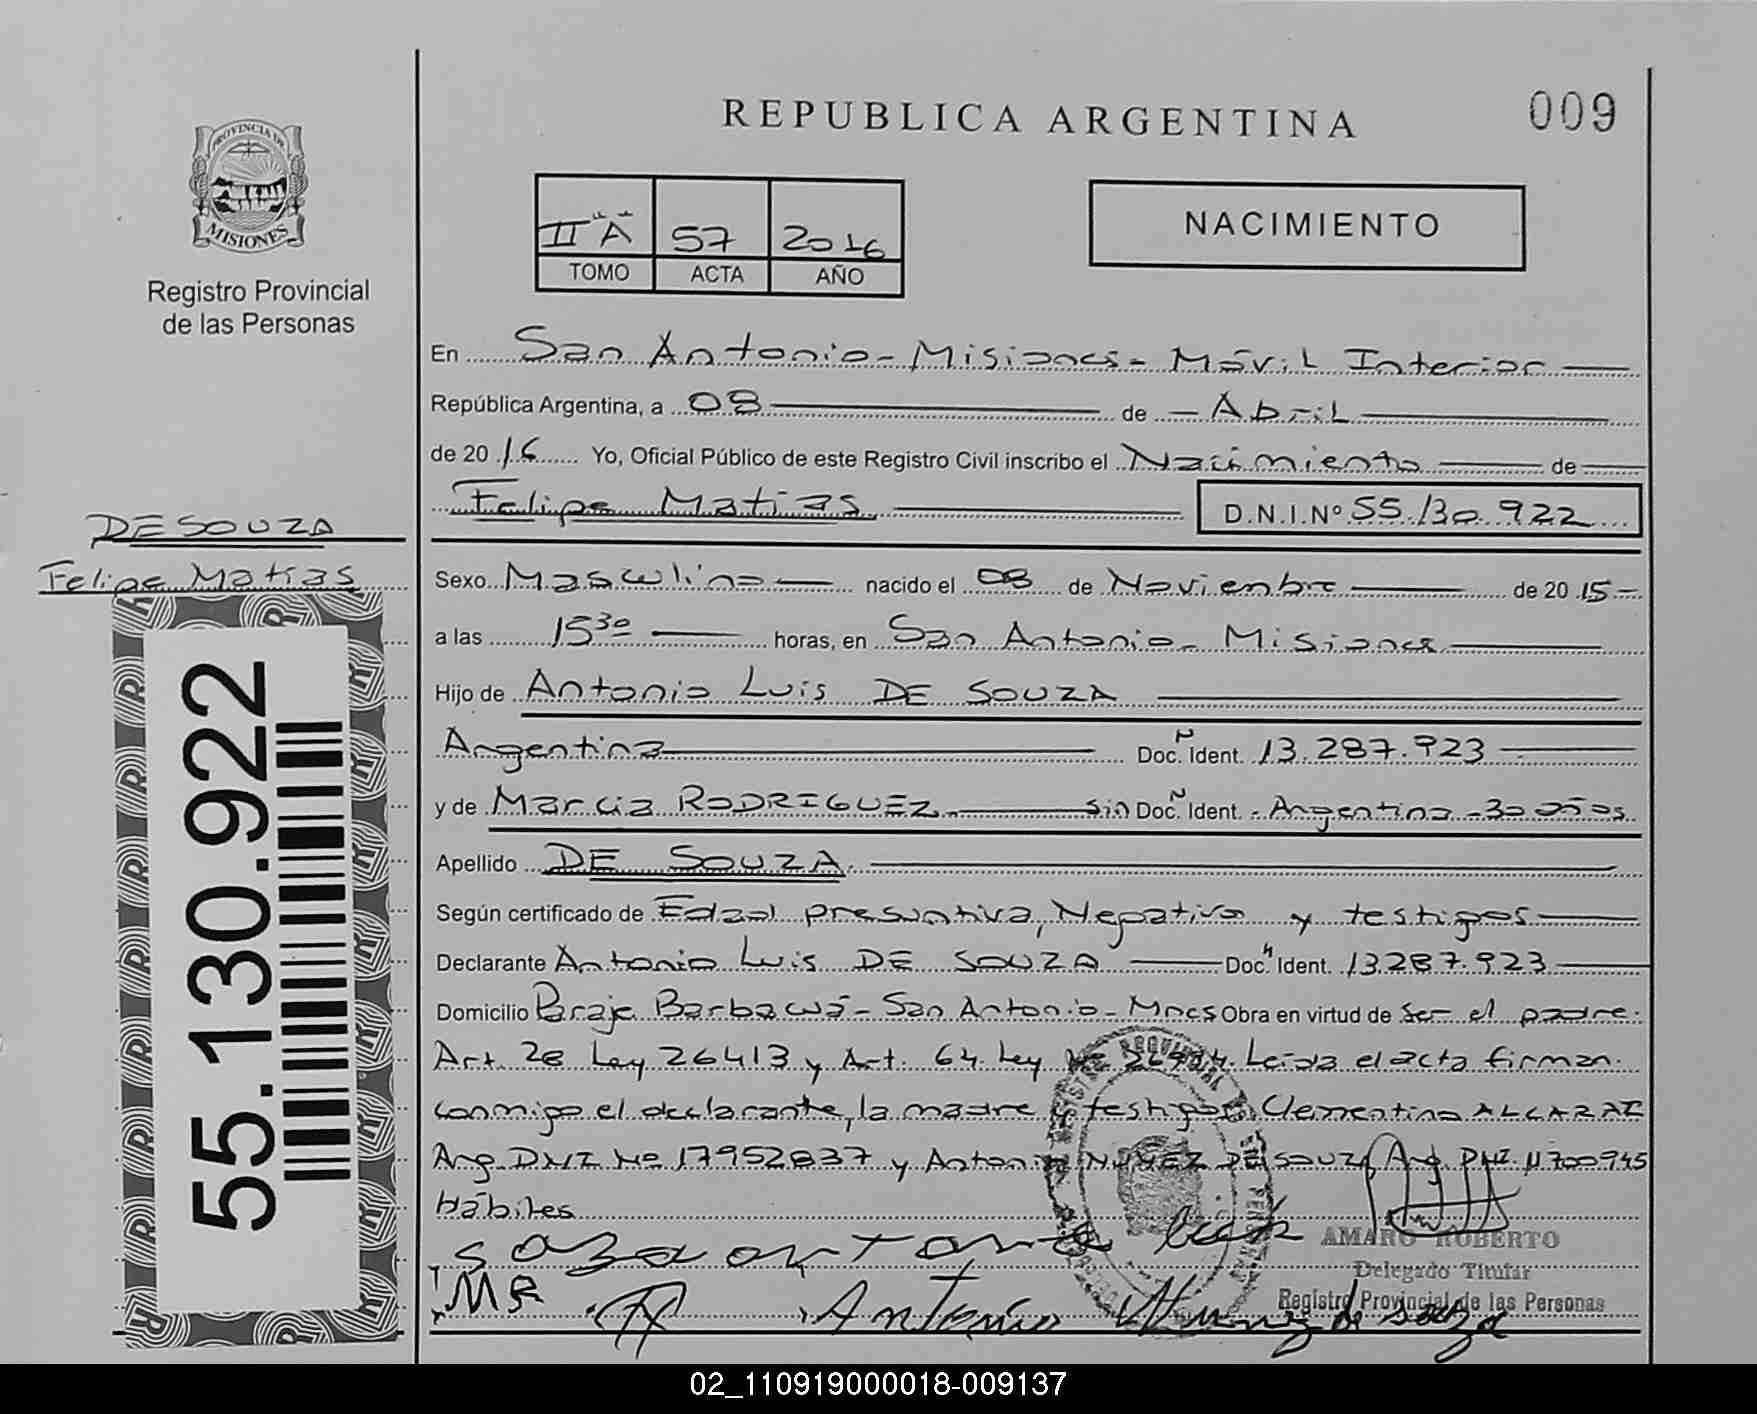 REPUBLICA ARGENTINA
009
PROVINCIA DE
MISIONES
Registro Provincial
de las Personas
II "A" 57 2016
TOMO ACTA AÑO
NACIMIENTO
En San Antonio - Misiones - Móvil Interior
República Argentina, a 08 de Abril
de 2016 Yo, Oficial Público de este Registro Civil inscribo el Nacimiento de
Felipe Matias D.N.I.Nº 55.130.922
DE SOUZA
Felipe Matias
55.130.922
Sexo Masculino nacido el 08 de Noviembre de 2015
a las 15 30 horas, en San Antonio - Misiones
Hijo de Antonio Luis DE SOUZA
Argentina Doc. Ident. 13.287.923
y de Marcia RODRIGUEZ sin Doc. Ident. - Argentina - 30 años
Apellido DE SOUZA
Según certificado de Edad presuntiva, Negativo y testigos
Declarante Antonio Luis DE SOUZA Doc. Ident. 13.287.923
Domicilio Paraje Barbacuá - San Antonio - Mnes Obra en virtud de ser el padre.
Art. 28 Ley 26413 y Art. 64 Ley Nº 26994. Leida el acta firman
conmigo el declarante, la madre y testigos Clementina ALCARAZ
Arg. DNI Nº 17952837 y Antonio NUÑEZ DE SOUZA Arg. DNI. 11700945
Hábiles
AMARO ROBERTO
Delegado Titular
Registro Provincial de las Personas
MR Antonio Nunez de souza
02_110919000018-009137